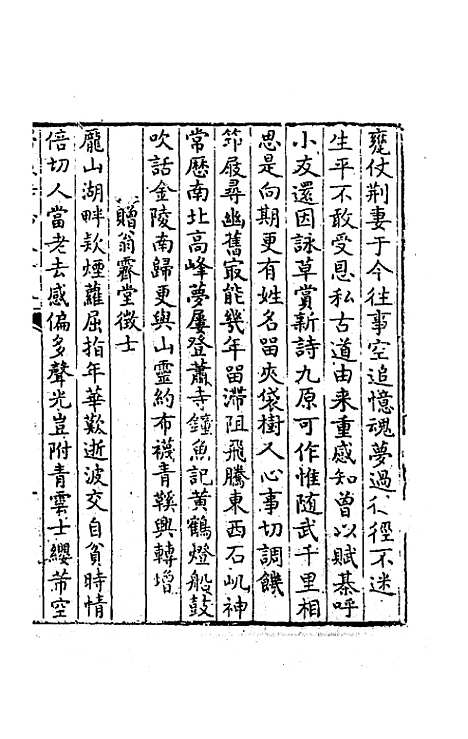 甕仗荆妻于今往事空追憶魂夢過行徑不迷
生平不敢受恩私古道由来重感知曾以賦棊呼
小友還因詠草賞新詩九原可作惟隨武千里相
思是向期更有姓名留夾袋樹人心事切調饑
筇屐尋幽舊㝡能幾年留滯阻飛騰東西石屼神
常歷南北高峰夢屢登蕭寺鐘魚記黄鶴燈船鼓
吹話金陵南歸更與山靈約布襪青鞵興轉增
贈翁霽堂徵士
龎山湖畔欵煙蘿屈指年華歎逝波交自貧時情
倍切人當老去感偏多聲光豈附青雲士纓芾空